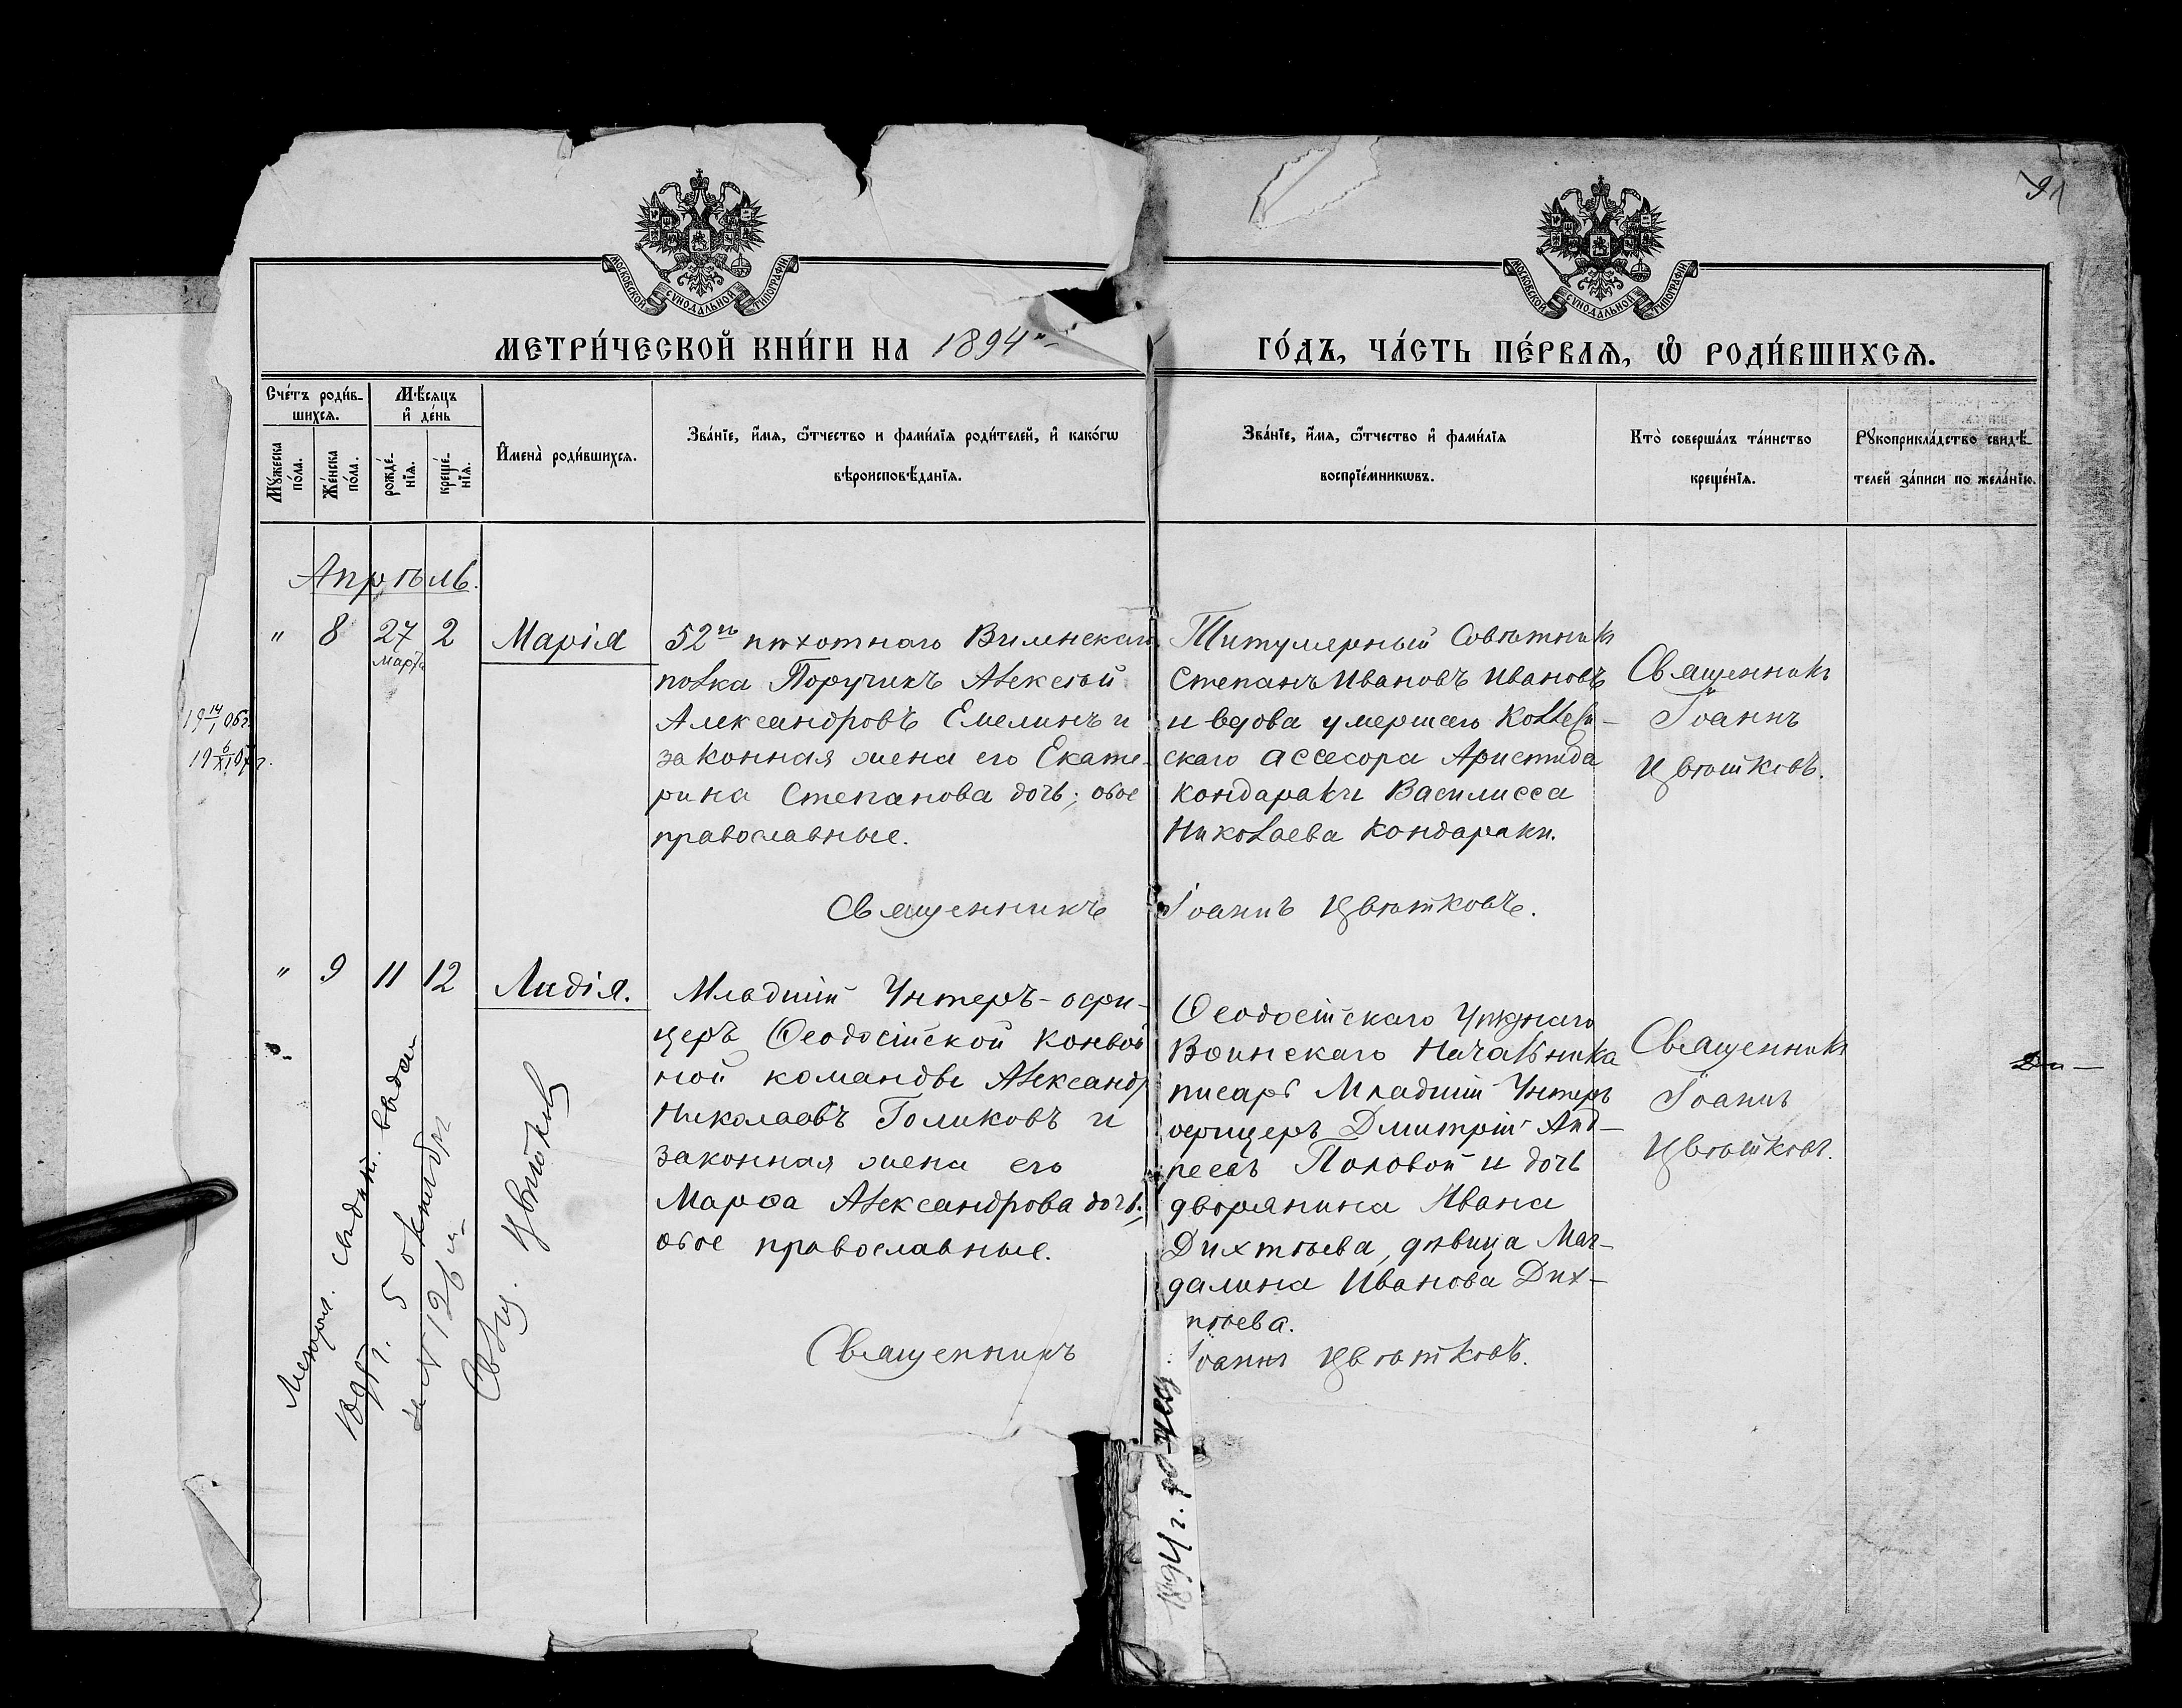 91
МОСКОВСКОЙ СѴНОДАЛЬНОЙ ТИПОГРАФІИ
МОСКОВСКОЙ СѴНОДАЛЬНОЙ ТИПОГРАФІИ
МЕТРИ́ЧЕСКОЙ КНИ́ГИ НА 1894
ГО́ДЪ, ЧА́СТЬ ПЕ́РВАѦ, Ѽ РОДИ́ВШИХСѦ.
Сче́тъ роди́в-
шихсѧ.
Мѣ́сѧцъ
и҆ де́нь
Мꙋ́жеска
по́ла.
Же́нска
по́ла.
рожде́-
нїѧ.
креще́-
нїѧ.
И҆мена̀ роди́вшихсѧ.
Зва́нїе, и҆́мѧ, ѻ҆́тчество и фами́лїѧ роди́телей, и҆ како́гѡ
вѣроисповѣ́данїѧ.
Зва́нїе, и҆́мѧ, ѻ҆́тчество и҆ фами́лїѧ
воспрїе́мникѡвъ.
Кто̀ соверша́лъ та́инство
креще́нїѧ.
Рꙋкоприкла́дство свидѣ́-
телей за́писи по жела́нїю.
Апрѣль.
" 8 27 2 Марія
марта
52го пѣхотнаго Виленскаго
полка Поручикъ Алексѣй
Александровъ Емелинъ и
законная жена его Екате-
рина Степанова дочь; обое
православные.
Титулярный Совѣтникъ
Степанъ Ивановъ Ивановъ
и вдова умершаго Коллеж-
скаго ассесора Аристида
Кондараки Василисса
Николаева Кондараки.
Священникъ
Іоаннъ
Цвѣтковъ.
Священникъ Іоаннъ Цвѣтковъ.
" 9 11 12 Лидія.
Младшій Унтеръ-офи-
церъ Ѳеодосійской конвой
ной команды Александръ
Николаевъ Голиковъ и
законная жена его
Марѳа Александрова дочь;
обое православные.
Ѳеодосійскаго Уѣзднаго
Воинскаго Начальника
писарь Младшій Унтеръ
офицеръ Дмитрій Анд-
реевъ Половой и дочь
дворянина Ивана
Дихтяева, дѣвица Маг-
далина Иванова Дих-
тяева.
Священникъ
Іоаннъ
Цвѣтковъ.
Священникъ Іоаннъ Цвѣтковъ.
Метрич. свидѣт. выдан
1895 г. 5 октября
за № 126 м.
Свящ. Цвѣтковъ
1894 г.